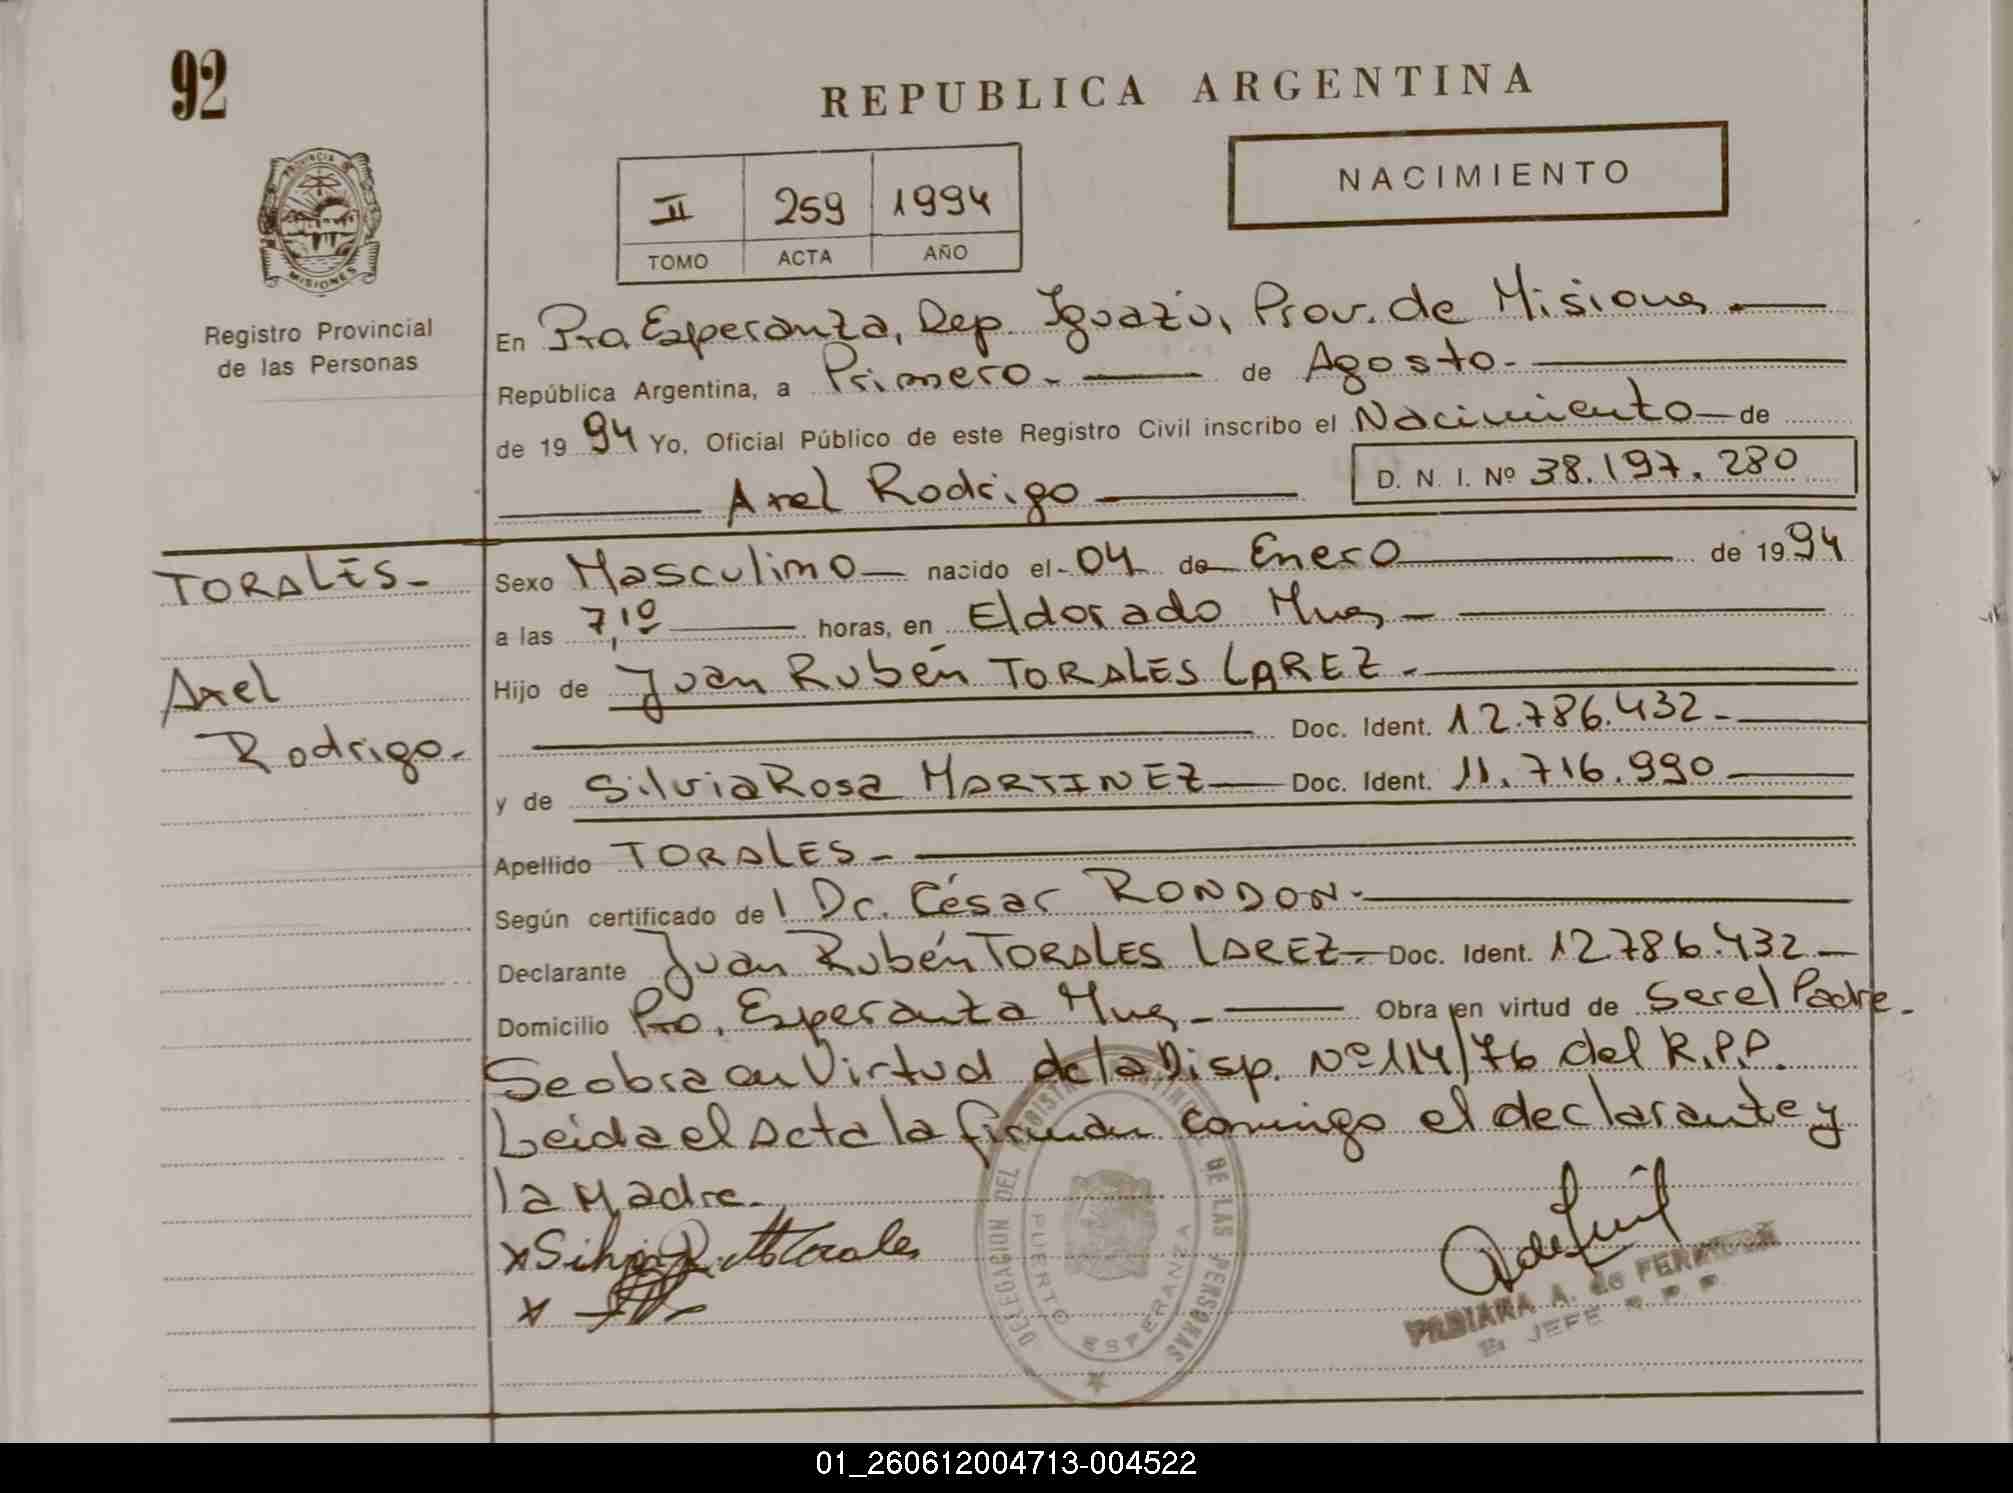 92
REPUBLICA ARGENTINA
NACIMIENTO
II 259 1994
TOMO ACTA AÑO
PROVINCIA DE
MISIONES
Registro Provincial
de las Personas
En Pto. Esperanza, Dep. Iguazú, Prov. de Misiones
República Argentina, a Primero de Agosto
de 19 94 Yo, Oficial Público de este Registro Civil inscribo el Nacimiento de
Axel Rodrigo D. N. I. Nº 38.197.280
TORALES
Axel
Rodrigo
Sexo Masculino nacido el 04 de Enero de 19 94
a las 7,10 horas, en Eldorado Mnes
Hijo de Juan Rubén TORALES LAREZ
Doc. Ident. 12.786.432
y de Silvia Rosa MARTINEZ Doc. Ident. 11.716.990
Apellido TORALES
Según certificado del Dr. César RONDON
Declarante Juan Rubén TORALES LAREZ Doc. Ident. 12.786.432
Domicilio Pto. Esperanza Mnes Obra en virtud de Ser el Padre
Se obra en Virtud de la Disp. Nº 114/76 del R.P.P.
Leida el Acta la firman conmigo el declarante y
la Madre.
DELEGACION DEL REGISTRO DE LAS PERSONAS
PUERTO ESPERANZA
A. de
JEFE R. P. P.
01_260612004713-004522